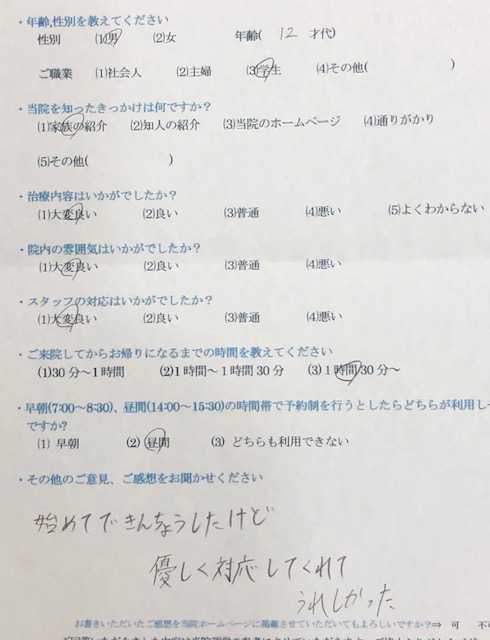 ・年齢,性別を教えてください
性別 (1)男 (2)女 年齢( 12 才代)
ご職業 (1)社会人 (2)主婦 (3)学生 (4)その他( )
・当院を知ったきっかけは何ですか？
(1)家族の紹介 (2)知人の紹介 (3)当院のホームページ (4)通りがかり
(5)その他( )
・治療内容はいかがでしたか？
(1)大変良い (2)良い (3)普通 (4)悪い (5)よくわからない
・院内の雰囲気はいかがでしたか？
(1)大変良い (2)良い (3)普通 (4)悪い
・スタッフの対応はいかがでしたか？
(1)大変良い (2)良い (3)普通 (4)悪い
・ご来院してからお帰りになるまでの時間を教えてください
(1)30分～1時間 (2)1時間～1時間30分 (3)1時間30分～
・早朝(7:00～8:30)、昼間(14:00～15:30)の時間帯で予約制を行うとしたらどちらが利用し
ですか?
(1) 早朝 (2) 昼間 (3) どちらも利用できない
・その他のご意見、ご感想をお聞かせください
始めてできんちょうしたけど
優しく対応してくれて
うれしかった
お書きいただいたご感想を当院ホームページに掲載させていただいてもよろしいですか？⇒ 可 不